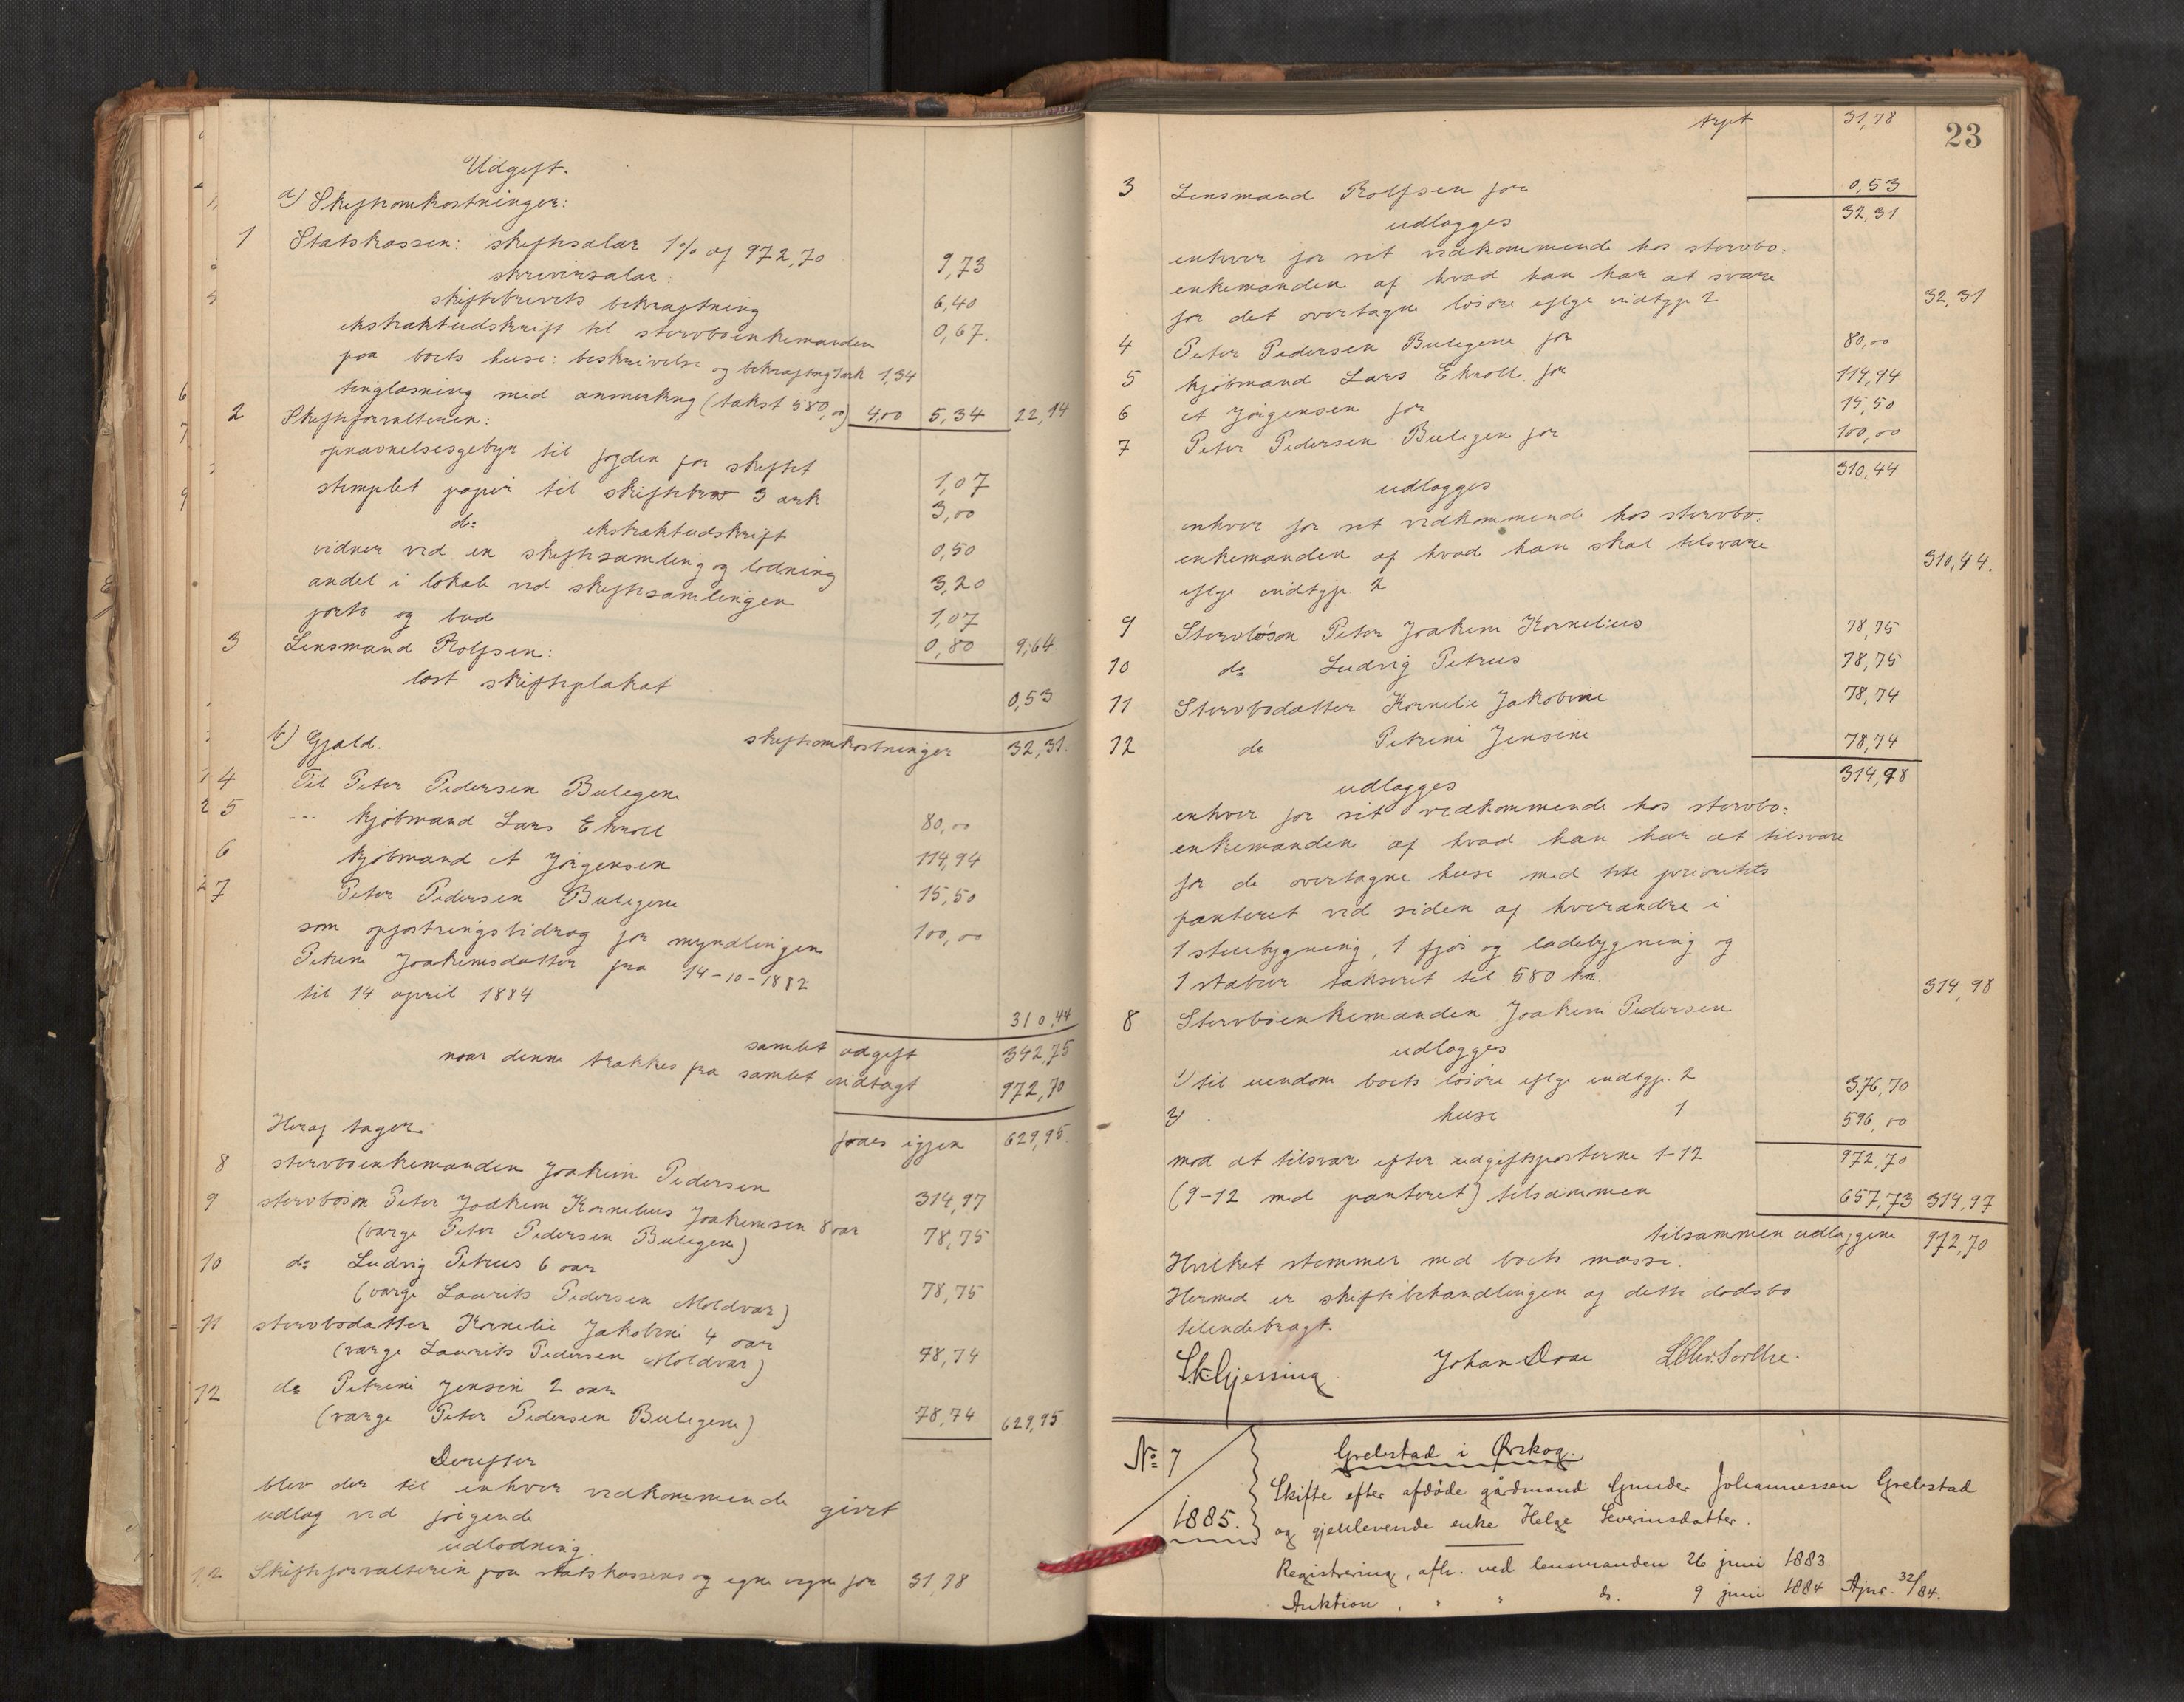 Udgift.
a) Skifteomkostninger:
1 Statskassen: skiftesalar 1% af 972,70 9,73
skriversalar:
skiftebrevets bekræftning 6,40
ekstraktudskrift til stervboenkemanden 0,67.
paa boets huse: beskrivelse og bekræftng 2 ark 1,34
tinglæsning med anmerkng (takst 580,00) 4,00 5,34 22,14
2 Skifteforvalteren:
opnævnelsesgebyr til fogden for skiftet 1,07
stemplet papir til skiftebrev 3 ark 3,00
do ekstraktudskrift 0,50
vidner ved en skiftesamling og lodning 3,20
andel i lokale ved skiftesamlingen 1,07
porto og bud 0,80 9,64
3 Lensmand Rolfsen:
læst skifteplakat 0,53
skifteomkostninger 32,31.
b) Gjæld.
4 Til Peter Pedersen Bulegene 80,00
5 --- kjøbmand Lars Ekroll 114,94
6 kjøbmand A Jørgensen 15,50
7 Peter Pedersen Bulegene 100,00
som opfostringsbidrag for myndlingen
Petrine Joakimsdatter fra 14-10-1882
til 14 april 1884
310,44
samlet udgift 342,75
naar denne trækkes fra samlet indtægt 972,70
faaes igjen 629,95.
Heraf tager:
8 stervboenkemanden Joakim Pedersen 314,97
9 stervbosøn Peter Joakim Kornelius Joakimsen 8 aar
(værge Peter Pedersen Bulegene) 78,75
10 do Ludvig Petrus 6 aar
(værge Laurits Pedersen Moldvær) 78,75
11 stervbodatter Kornelie Jakobine 4 aar
(værge Laurits Pedersen Moldvær) 78,74
12 do Petrine Jensine 2 aar
(værge Peter Pedersen Bulegene) 78,74 629,95
Derefter
blev der til enhver vedkommende givet
udlæg ved følgende
udlodning.
1,2 Skifteforvalteren paa statskassens og egne vegne for 31,78
23
trpt 31,78
3 Lensmand Rolfsen for 0,53
32,31
udlægges
enhver for sit vedkommende hos stervbo:
enkemanden af hvad han har at svare
for det overtagne løsøre ifølge indtgp 2 32,31
4 Peter Pedersen Bulegene for 80,00
5 kjøbmand Lars Ekroll for 114,94
6 A Jørgensen for 15,50
7 Peter Pedersen Bulegene for 100,00
310,44
udlægges
enhver for sit vedkommende hos stervbo:
enkemanden af hvad han skal tilsvare
ifølge indtgp. 2 310,44.
9 Stervbosøn Peter Joakim Kornelius 78,75
10 do Ludvig Petrus 78,75
11 Stervbodatter Kornelie Jakobine 78,74
12 do Petrine Jensine 78,74
314,98
udlægges
enhver for sit vedkommende hos stervbo:
enkemanden af hvad han har at tilsvare
for de overtagne huse med 1ste prioritets
panteret ved siden af hverandre i
1 stuebygning, 1 fjøs og ladebygning og
1 stabur takseret til 580 kr. 314,98
8 Stervboenkemanden Joakim Pedersen
udlægges
1) til eiendom boets løsøre ifølge indtgp. 2 376,70
2) huse 1 596,00
972,70
mod at tilsvare efter udgiftsposterne 1-12
(9-12 med panteret) tilsammen 657,73 314,97
tilsammen udlæggene 972,70
Hvilket stemmer med boets masse.
Hermed er skiftebehandlingen af dette dødsbo
tilendebragt.
Johan Doae
No 7
1885.
Grebstad i Ørskog.
Skifte efter afdøde gårdmand Gunder Johannessen Grebstad
og gjenlevende enke Helge Severinsdatter.
Registrering, afh. ved lensmanden 26 juni 1883.
Auktion, " " do. 9 juni 1884 Ajnr. 32/84.